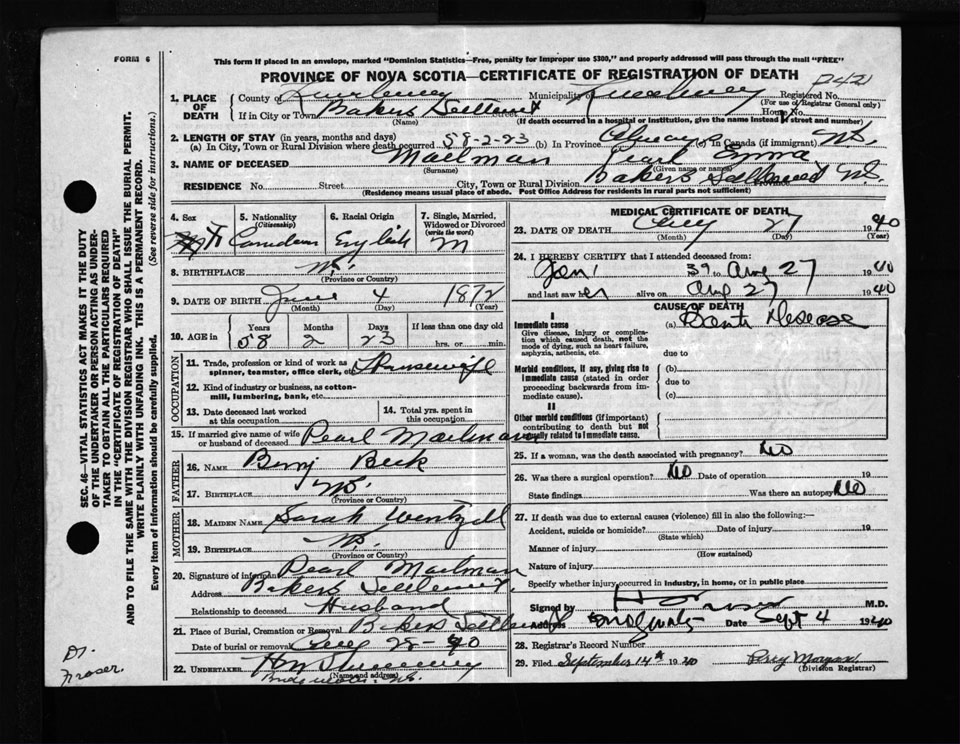 FORM 6
This form if placed in an envelope, marked "Dominion Statistics—Free, penalty for improper use $300," and properly addressed will pass through the mail "FREE"
PROVINCE OF NOVA SCOTIA—CERTIFICATE OF REGISTRATION OF DEATH
D42
1. PLACE OF DEATH
County of Lunenburg Municipality of Lunenburg Registered No.
(For use of Registrar General only)
If in City or Town Bakers Settlement House No.
(Name) (If death occurred in a hospital or institution, give the name instead of street and number)
2. LENGTH OF STAY (in years, months and days)
(a) In City, Town or Rural Division where death occurred 58-2-23 (b) In Province Always (c) in Canada (if immigrant) N.S.
3. NAME OF DECEASED Mailman Pearl Emma
(Surname) (Given name or names)
RESIDENCE No. Street City, Town or Rural Division Bakers Settlement Province N.S.
(Residence means usual place of abode. Post Office Address for residents in rural parts not sufficient)
4. Sex F
5. Nationality (Citizenship) Canadian
6. Racial Origin English
7. Single, Married, Widowed or Divorced (write the word) M
8. BIRTHPLACE N.S.
(Province or Country)
9. DATE OF BIRTH June 4 1872
(Month) (Day) (Year)
10. AGE in Years Months Days If less than one day old
58 2 23 hrs. or min.
OCCUPATION
11. Trade, profession or kind of work as spinner, teamster, office clerk, etc. Housewife
12. Kind of industry or business, as cotton-mill, lumbering, bank, etc.
13. Date deceased last worked at this occupation
14. Total yrs. spent in this occupation
15. If married give name of wife or husband of deceased Pearl Mailman
FATHER
16. NAME Benj Beck
17. BIRTHPLACE N.S.
(Province or Country)
MOTHER
18. MAIDEN NAME Sarah Wentzell
19. BIRTHPLACE N.S.
(Province or Country)
20. Signature of informant Pearl Mailman
Address Bakers Settlement
Relationship to deceased Husband
21. Place of Burial, Cremation or Removal Bakers Settlement
Date of burial or removal Aug 28-40
22. UNDERTAKER
(Name and address)
Bridgewater N.S.
MEDICAL CERTIFICATE OF DEATH
23. DATE OF DEATH Aug 27 1940
(Month) (Day) (Year)
24. I HEREBY CERTIFY that I attended deceased from:
Jan 39 to Aug 27 1940
and last saw her alive on Aug 27 1940
CAUSE OF DEATH
I
Immediate cause
Give disease, injury or complication which caused death, not the mode of dying, such as heart failure, asphyxia, asthenia, etc.
(a) Disease
due to
Morbid conditions, if any, giving rise to immediate cause (stated in order proceeding backwards from immediate cause).
(b)
due to
(c)
II
Other morbid conditions (if important) contributing to death but not causally related to immediate cause.
25. If a woman, was the death associated with pregnancy? No
26. Was there a surgical operation? No Date of operation 19
State findings Was there an autopsy No
27. If death was due to external causes (violence) fill in also the following:—
Accident, suicide or homicide? Date of injury 19
(State which)
Manner of injury
(How sustained)
Nature of injury
Specify whether injury occurred in industry, in home, or in public place
Signed by M.D.
Address Bridgewater Date Sept 4 1940
28. Registrar's Record Number
29. Filed September 14th 1940
(Division Registrar)
SEC. 46—VITAL STATISTICS ACT MAKES IT THE DUTY
OF THE UNDERTAKER OR PERSON ACTING AS UNDER-
TAKER TO OBTAIN ALL THE PARTICULARS REQUIRED
IN THE "CERTIFICATE OF REGISTRATION OF DEATH"
AND TO FILE THE SAME WITH THE DIVISION REGISTRAR WHO SHALL ISSUE THE BURIAL PERMIT.
WRITE PLAINLY WITH UNFADING INK. THIS IS A PERMANENT RECORD.
Every item of information should be carefully supplied. (See reverse side for instructions.)
Dr.
Fraser.